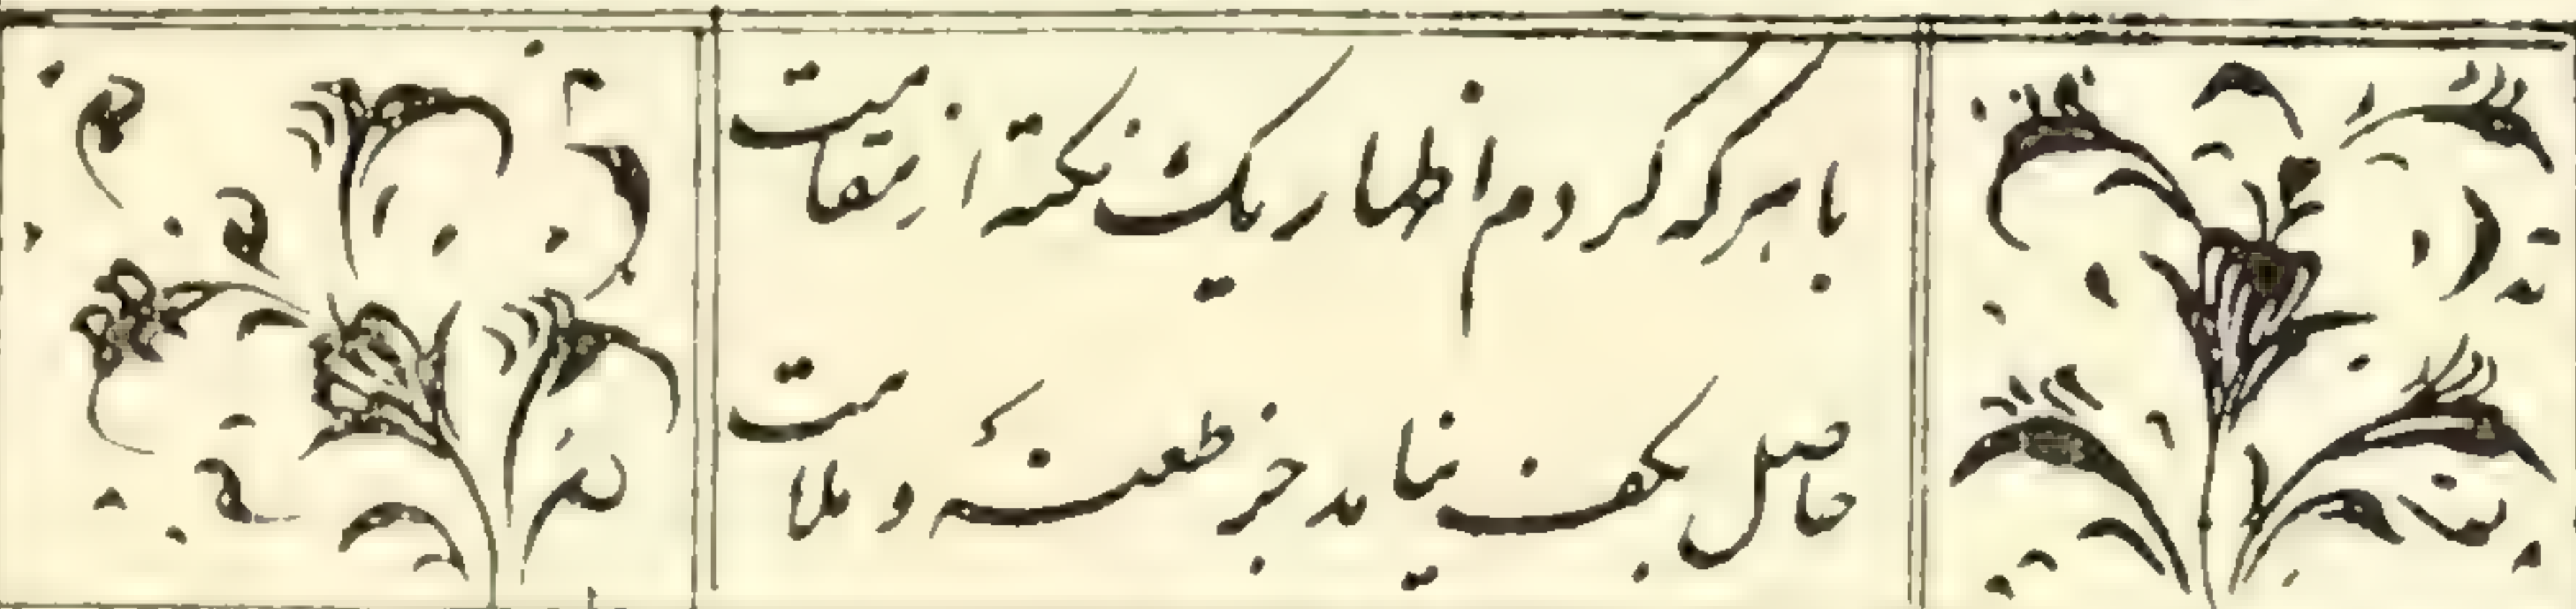 با هر که کردم اظهار یک نکته از مقامت
حاصل بکف نیامد جز طعنهٔ و ملامت